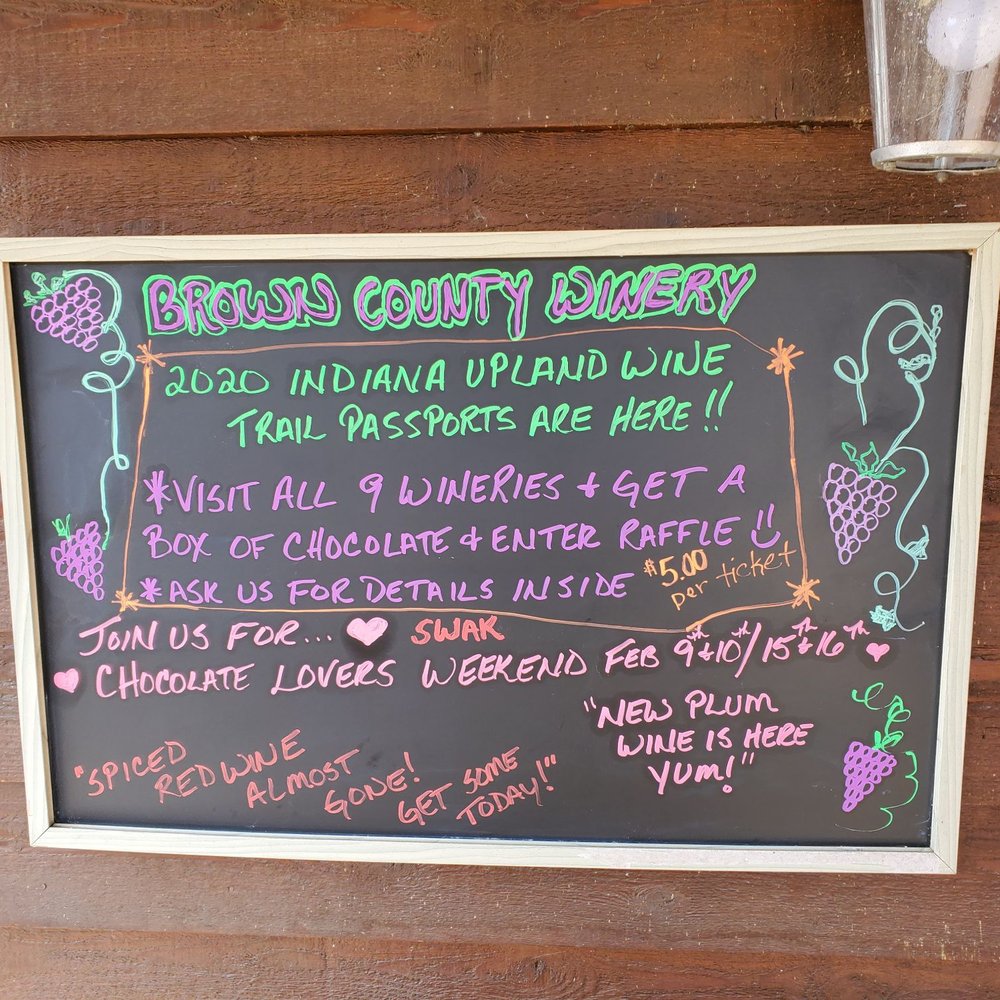 BROWN COUNTY WINERY
2020 INDIANA UPLAND WINE
TRAIL PASSPORTS ARE HERE!!
*VISIT ALL 9 WINERIES & GET A
BOX OF CHOCOLATE & ENTER RAFFLE
*ASK US FOR DETAILS INSIDE
$5.00
per ticket
JOIN US FOR... SWAK
CHOCOLATE LOVERS WEEKEND FEB 9th & 10th/15th & 16th
"NEW PLUM
WINE IS HERE
YUM!"
"SPICED
RED WINE
ALMOST
GONE!
GET SOME
TODAY!"